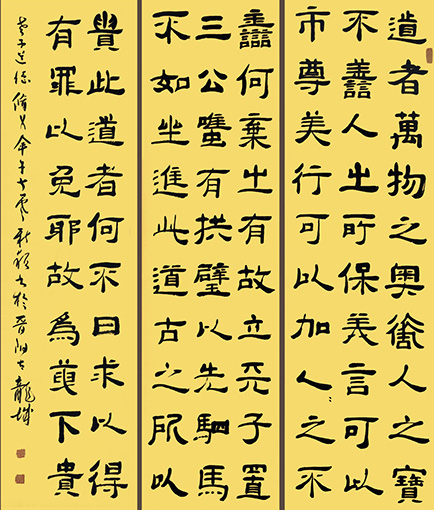 道者萬物之奧善人之寶
不譱人之所保美言可以
市尊美行可以加人〻之不
譱何棄之有故立天子置
三公雖有拱璧以先駟馬
不如坐進此道古之所以
貴此道者何不曰求以得
有罪以免耶故爲天下貴
老子道德 午 書於晉陽 龍城